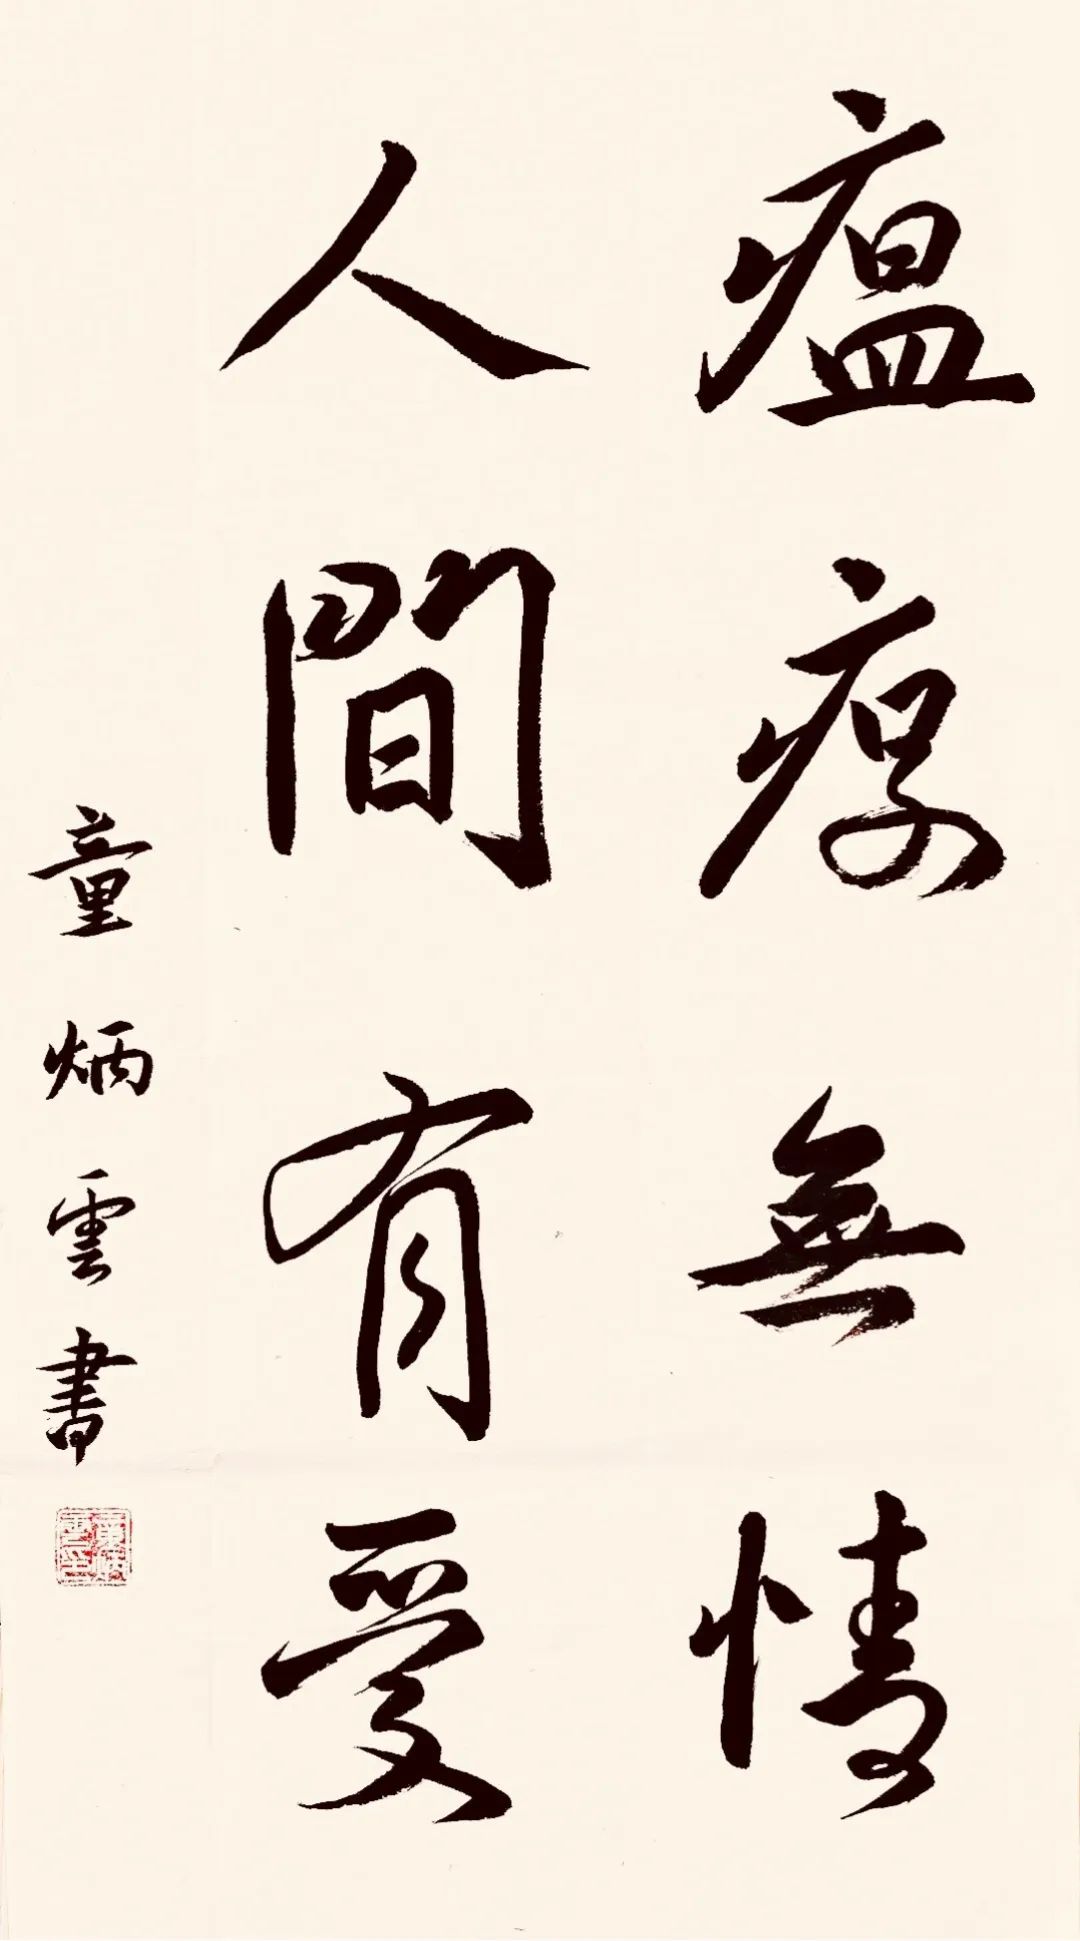 瘟疫無情
人間有愛
童炳雲書